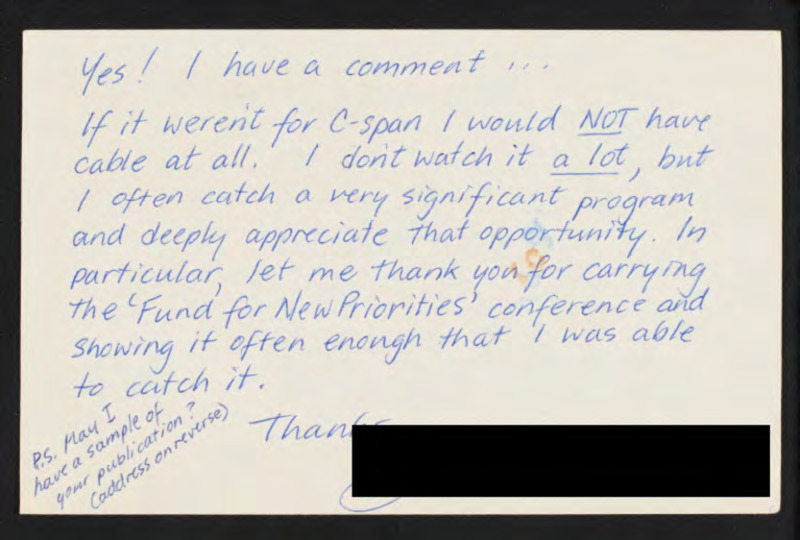 Yes! I have a comment ...
If it weren't for C-span I would NOT have
cable at all. I don't watch it a lot, but
I often catch a very significant program
and deeply appreciate that opportunity. In
particular, let me thank you for carrying
the 'Fund for New Priorities' conference and
showing it often enough that I was able
to catch it.
Thanks
P.S. May I
have a sample of
your publication?
(address on reverse)